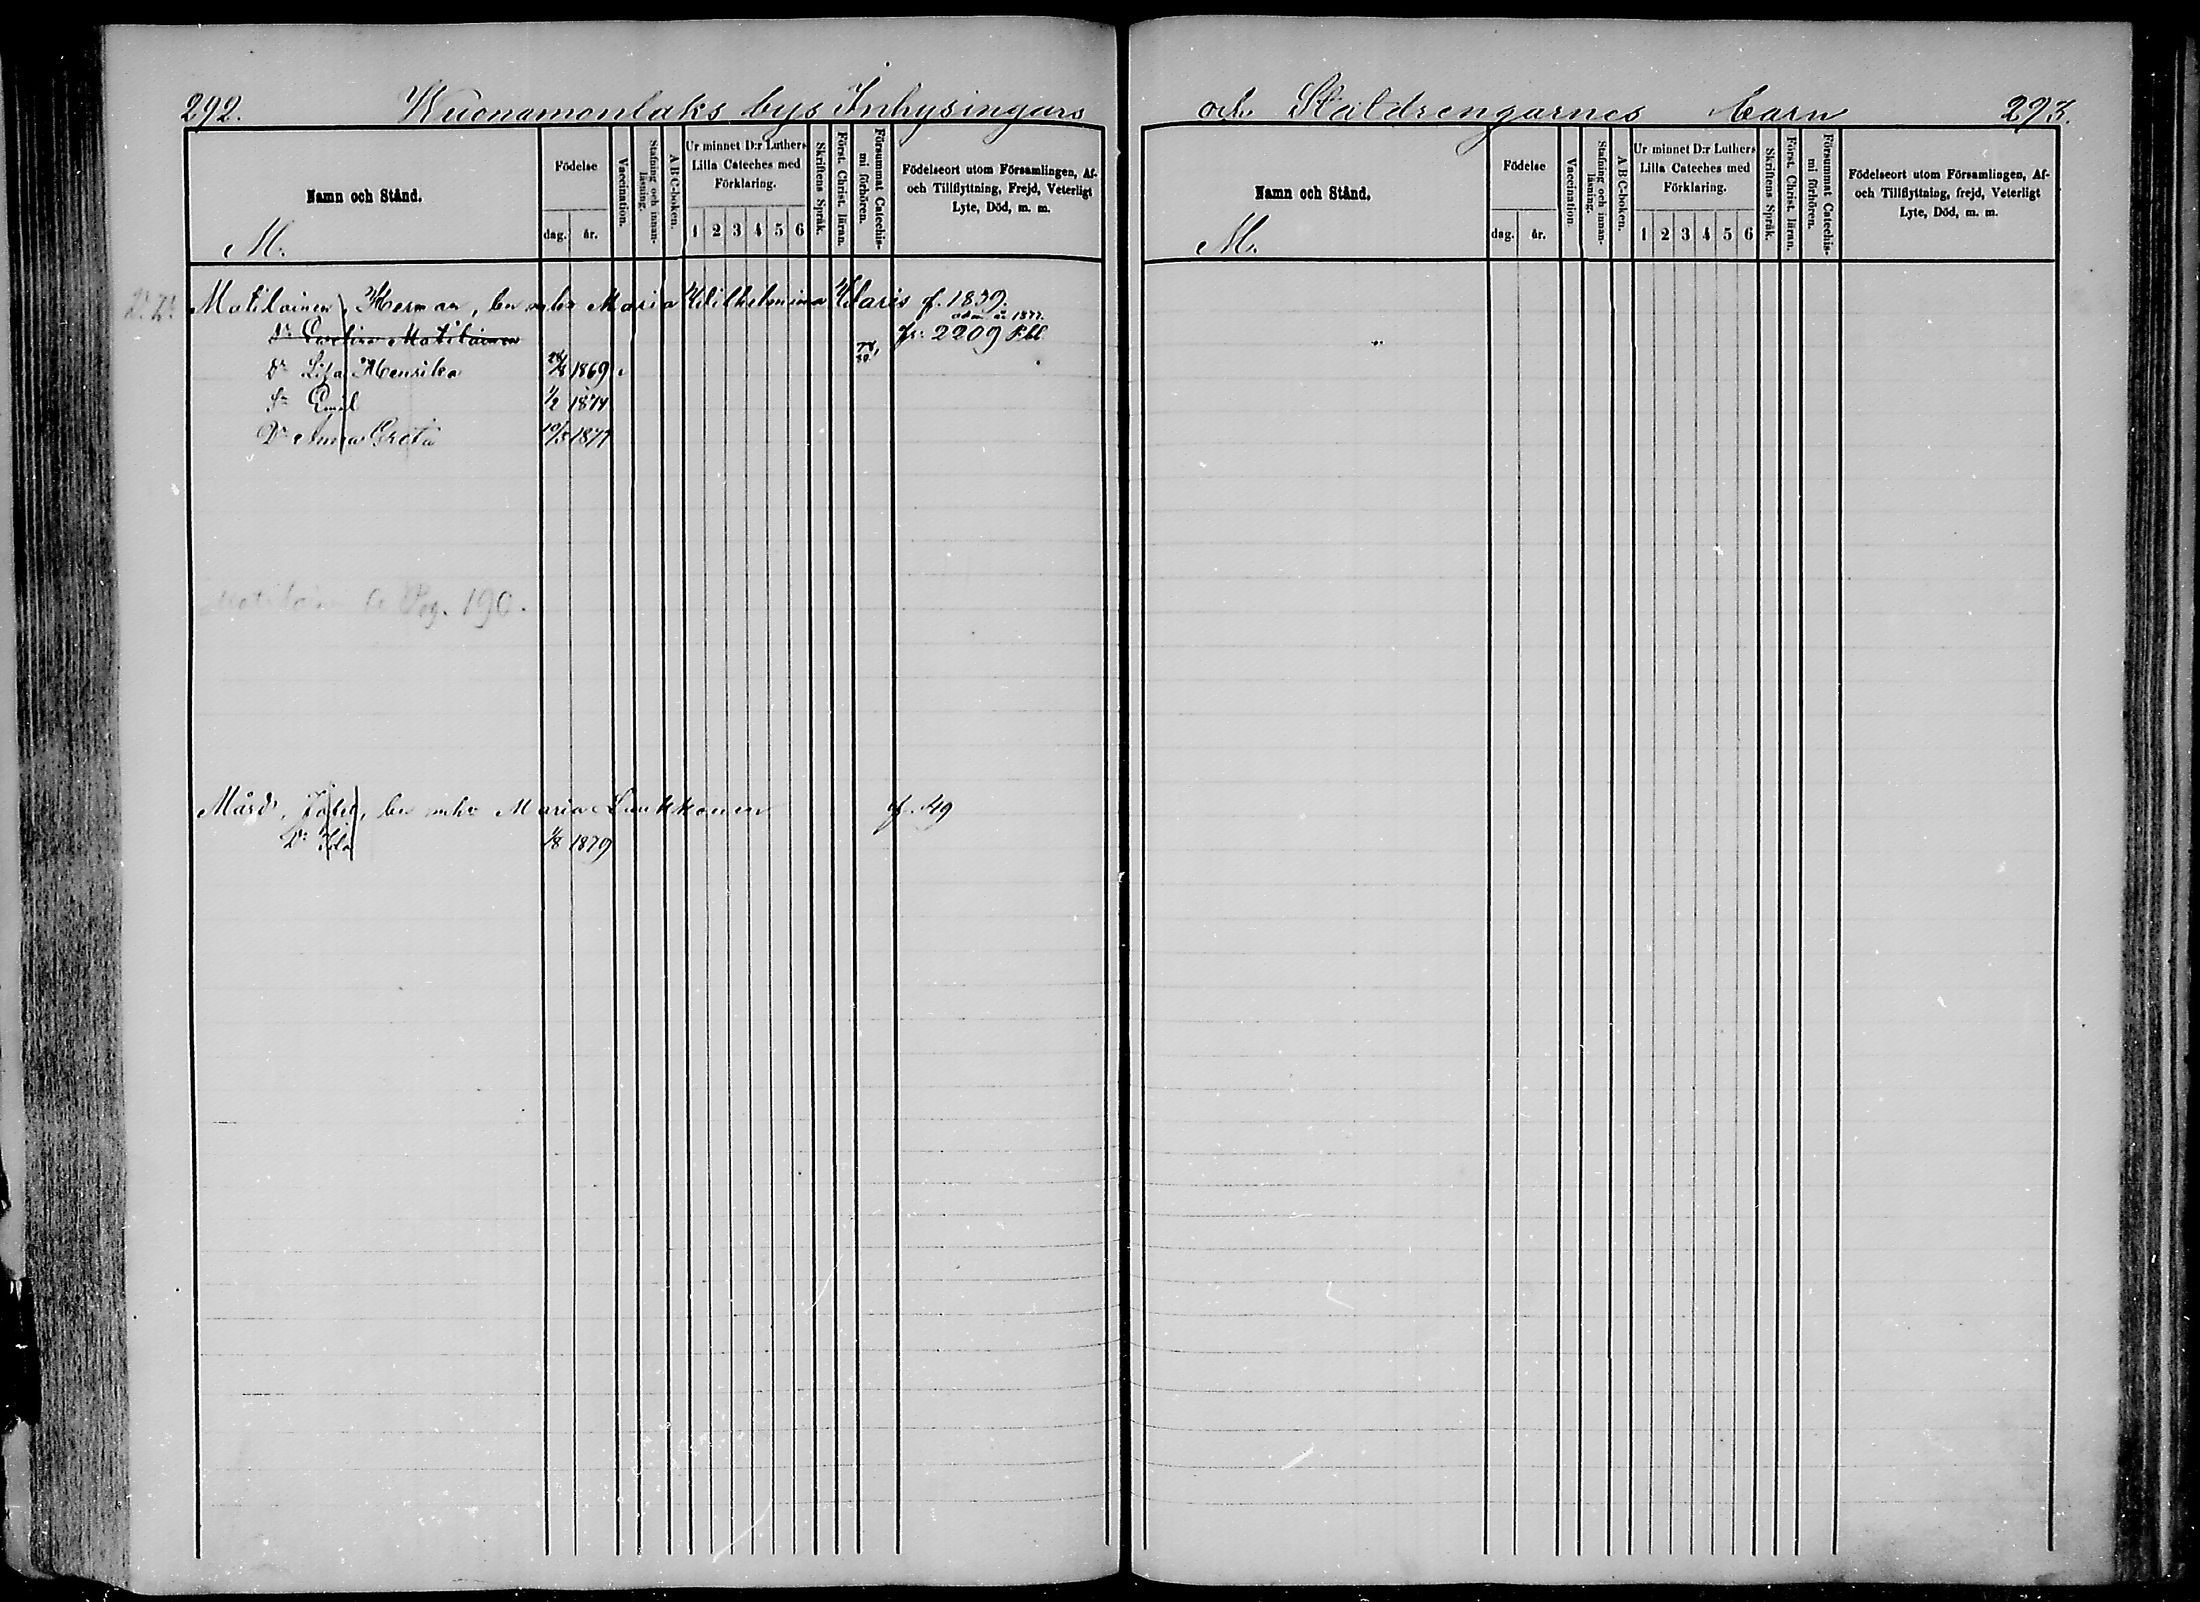 292. Kuonamonlaks bys Inhysingars
Namn och Stånd.
M.
Födelse
dag. år.
Vaccination.
Stafning och innanläsning.
A B C-boken.
Ur minnet D:r Luthers Lilla Cateches med Förklaring.
1 2 3 4 5 6
Skriftens Språk.
Först. Christ. läran.
Försummat Catechismi förhören.
Födelseort utom Församlingen, Af- och Tillflyttning, Frejd, Veterligt Lyte, Död, m. m.
Matilainen, Herman, bm mho Maria Wilhelmina Hilaris f. 1839.
Dr Matilainen fr. 2209 Kbl
Dr Lisa Henrika 28/8 1869
Sn Emil 1/2 1874
Dr Anna Greta 10/5 1877
Pag. 190.
Mård, bm mho Maria Laukkonen f. 49
Dr Ida 1/8 1879
och Stalldrengarnes barn 293.
Namn och Stånd.
M.
Födelse
dag. år.
Vaccination.
Stafning och innanläsning.
A B C-boken.
Ur minnet D:r Luthers Lilla Cateches med Förklaring.
1 2 3 4 5 6
Skriftens Språk.
Först. Christ. läran.
Försummat Catechismi förhören.
Födelseort utom Församlingen, Af- och Tillflyttning, frejd, Veterligt Lyte, Död, m. m.